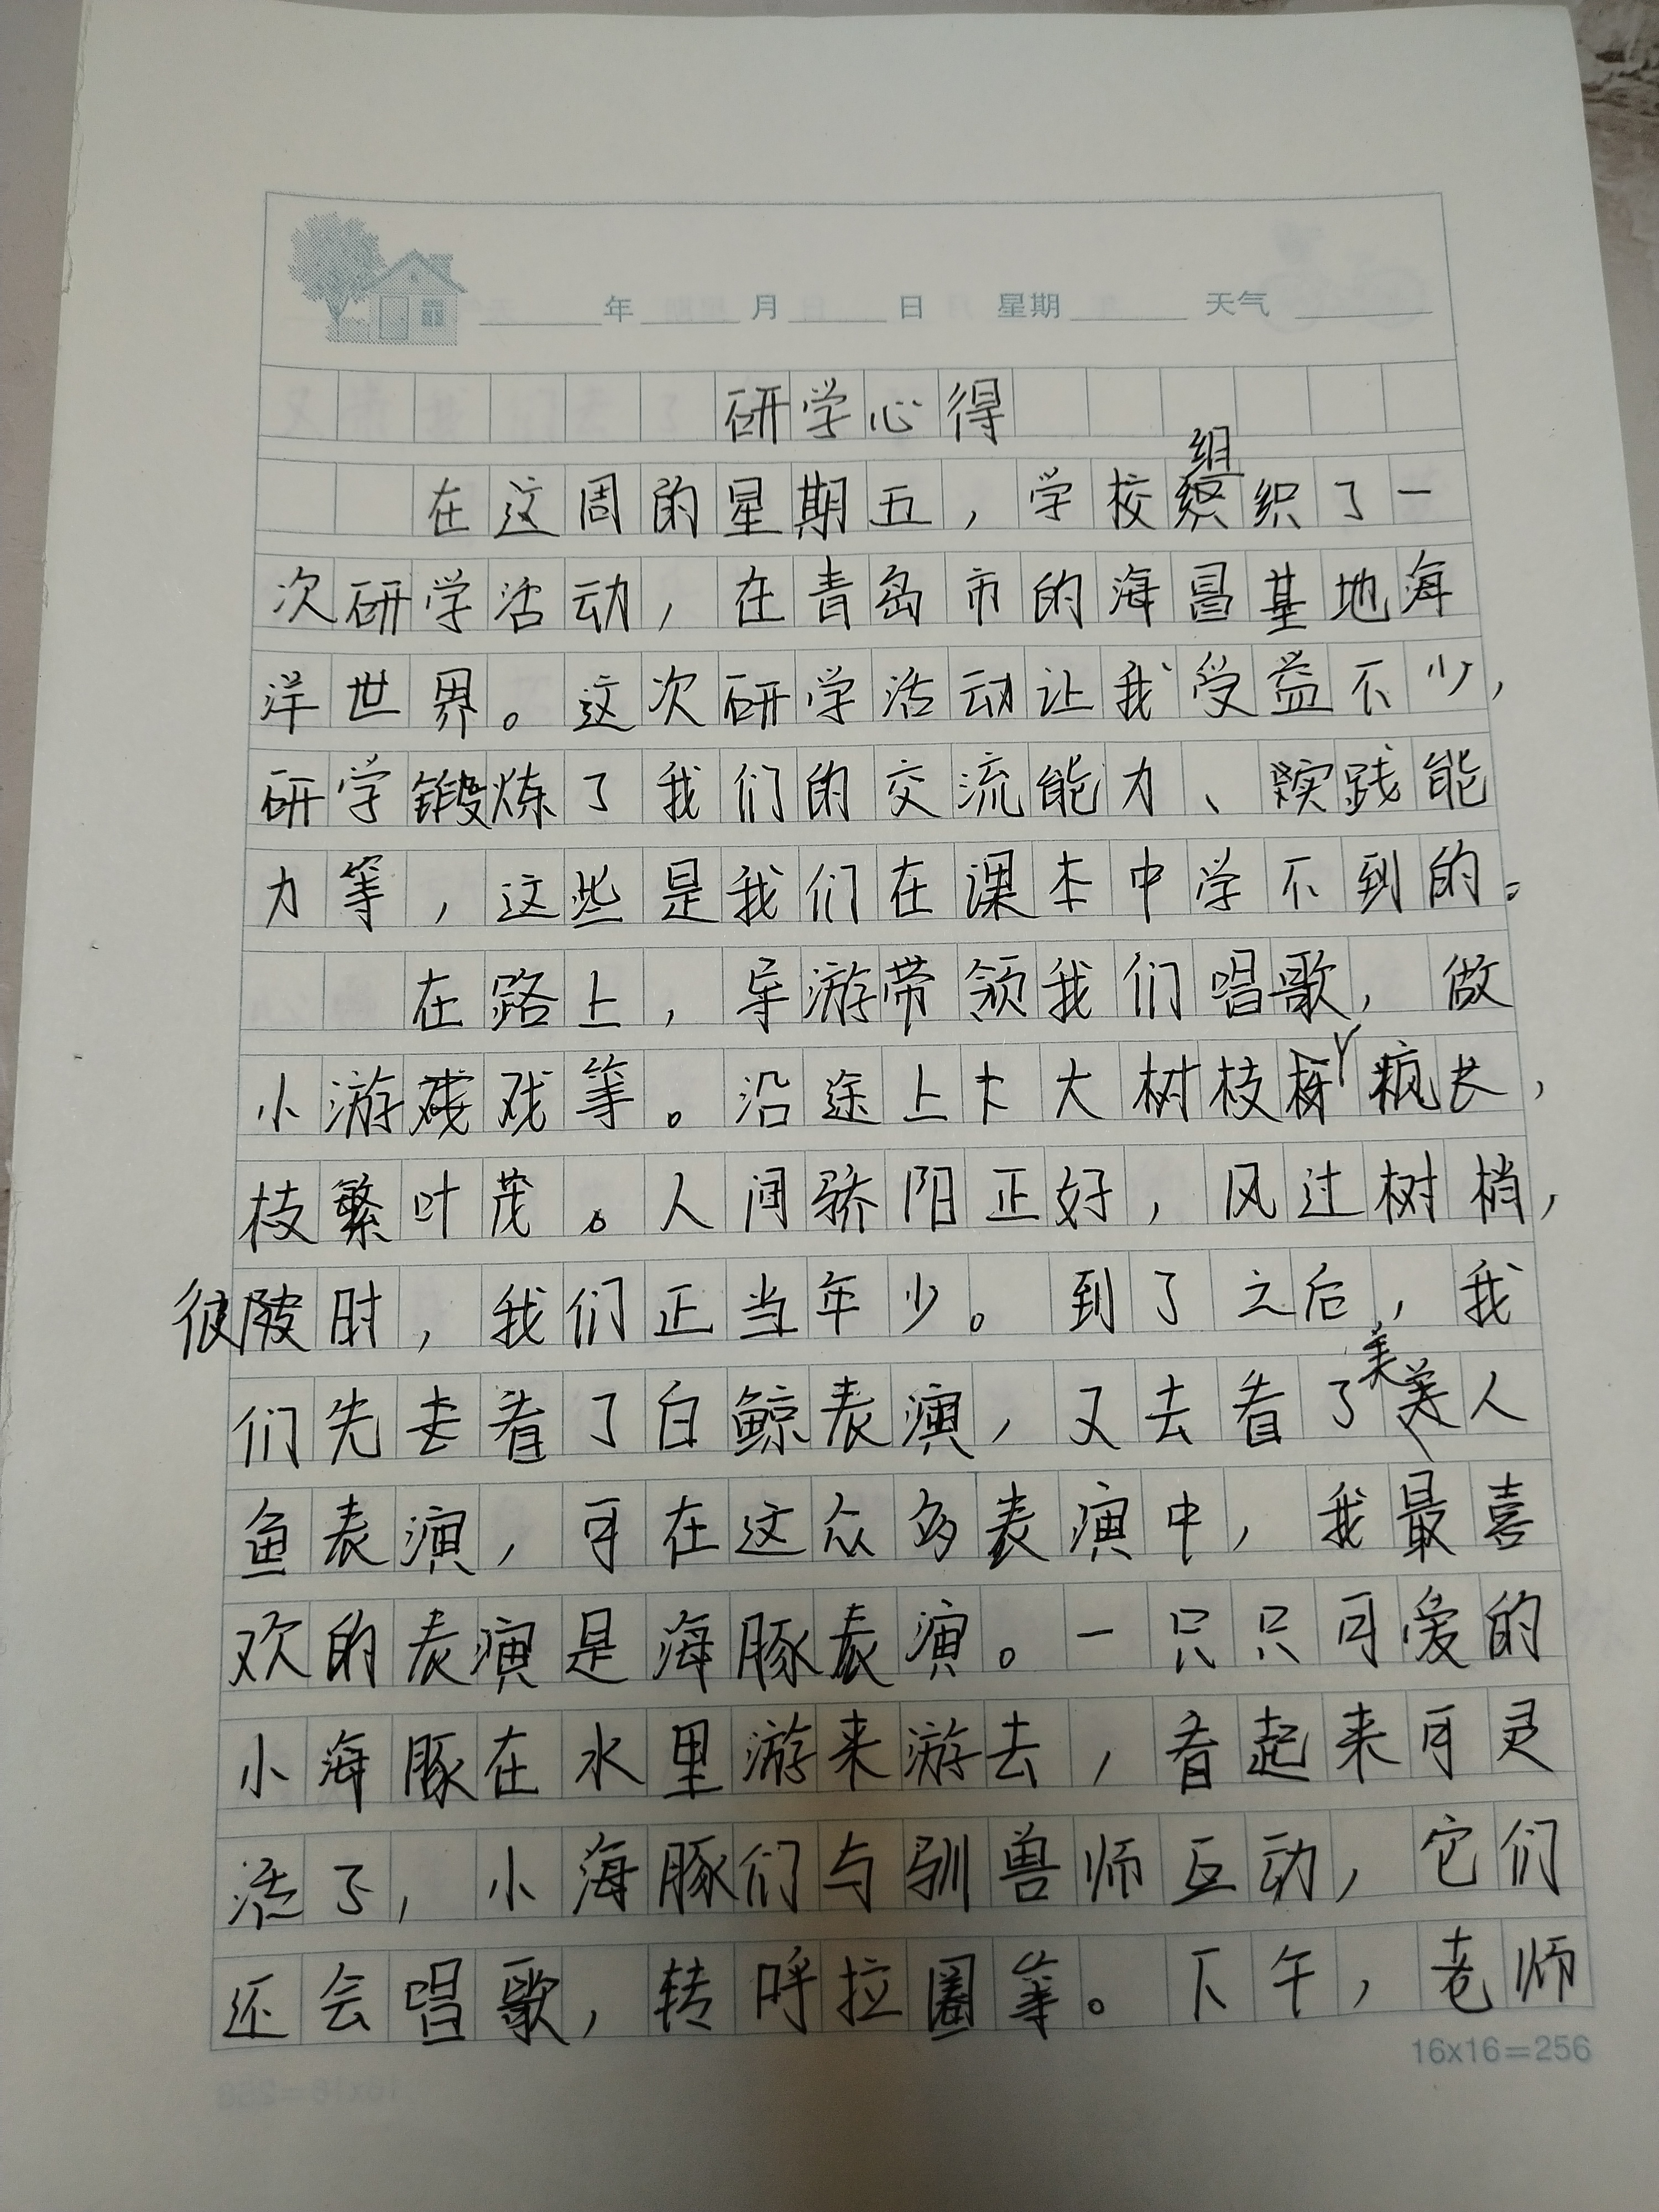 年 月 日 星期 天气
研学心得
在这周的星期五，学校组织了一
次研学活动，在青岛市的海昌基地海
洋世界。这次研学活动让我受益不少，
研学锻炼了我们的交流能力、实践能
力等，这些是我们在课本中学不到的。
在路上，导游带领我们唱歌，做
小游戏等。沿途上大树枝丫疯长，
枝繁叶茂。人间骄阳正好，风过树梢，
彼时，我们正当年少。到了之后，我
们先去看了白鲸表演，又去看了美人
鱼表演，可在这众多表演中，我最喜
欢的表演是海豚表演。一只只可爱的
小海豚在水里游来游去，看起来可灵
活了，小海豚们与驯兽师互动，它们
还会唱歌，转呼拉圈等。下午，老师
16x16=256